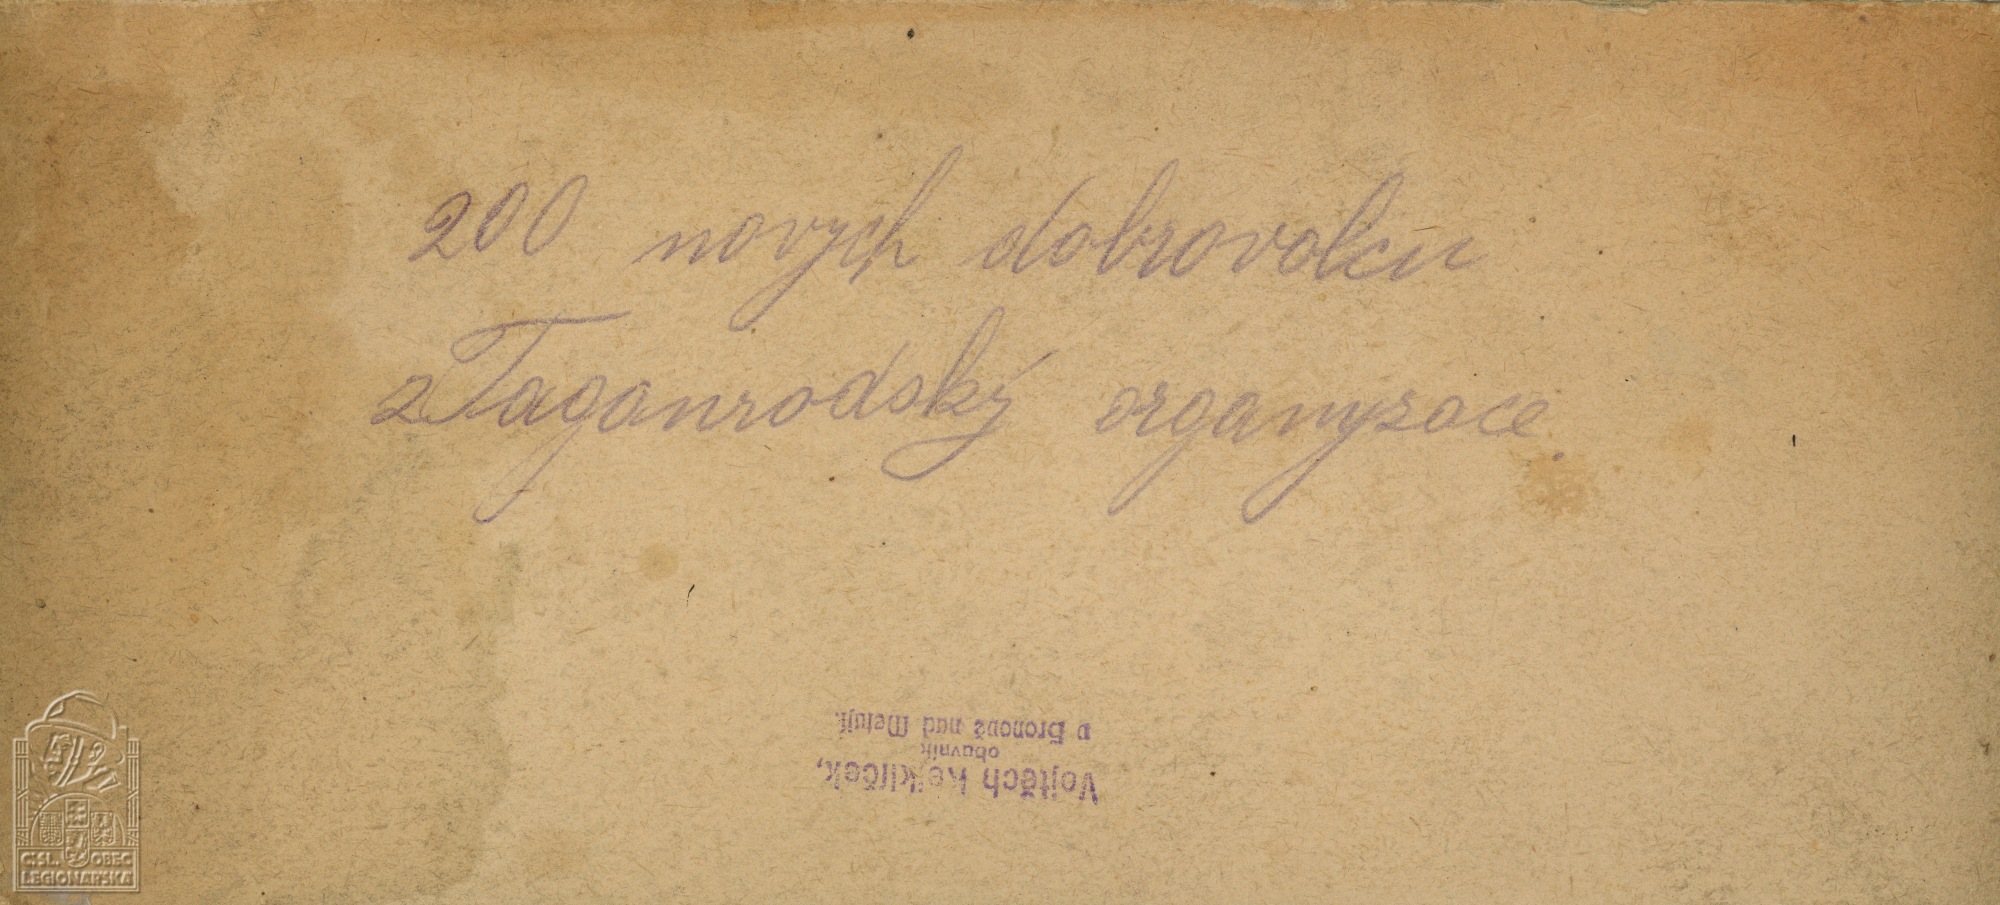 200 novych dobrovolcu
z Taganrodský organyzace.
Vojtěch
obuvník
v Hronově nad Metují.
ČSL. OBEC
LEGIONÁŘSKÁ